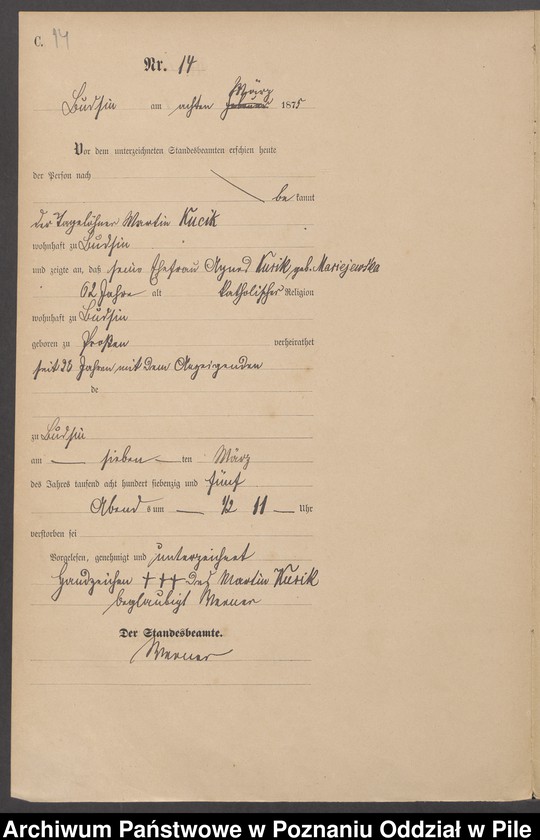 C. 14
Nr. 14
März
Budsin am achten Februar 1875
Vor dem unterzeichneten Standesbeamten erschien heute
der Person nach
be kannt
der Tagelöhner Martin Kucik
wohnhaft zu Budsin
und zeigte an, daß seine Ehefrau Agnes Kusik, geb. Maciejewska
62 Jahre alt katholischer Religion
wohnhaft zu Budsin
geboren zu Prosken verheirathet
seit 23 Jahren mit dem Anzeigenden
de
zu Budsin
am — sieben — ten März
des Jahres tausend acht hundert siebenzig und fünf
Abend s um — ½ 11 — Uhr
verstorben sei
Vorgelesen, genehmigt und unterzeichnet
Handzeichen +++ des Martin Kusik
beglaubigt Werner
Der Standesbeamte.
Werner
Archiwum Państwowe w Poznaniu Oddział w Pile